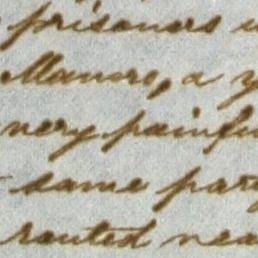 prisoners
a y
very painfu
same party
routed nea